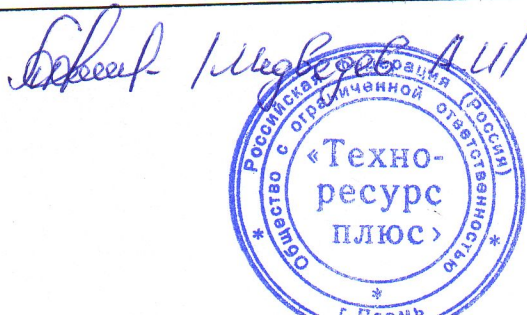 Медведев А.И
Российская Федерация (Россия)
* Общество с ограниченной ответственностью *
«Техно-
ресурс
плюс»
*
г. Пермь